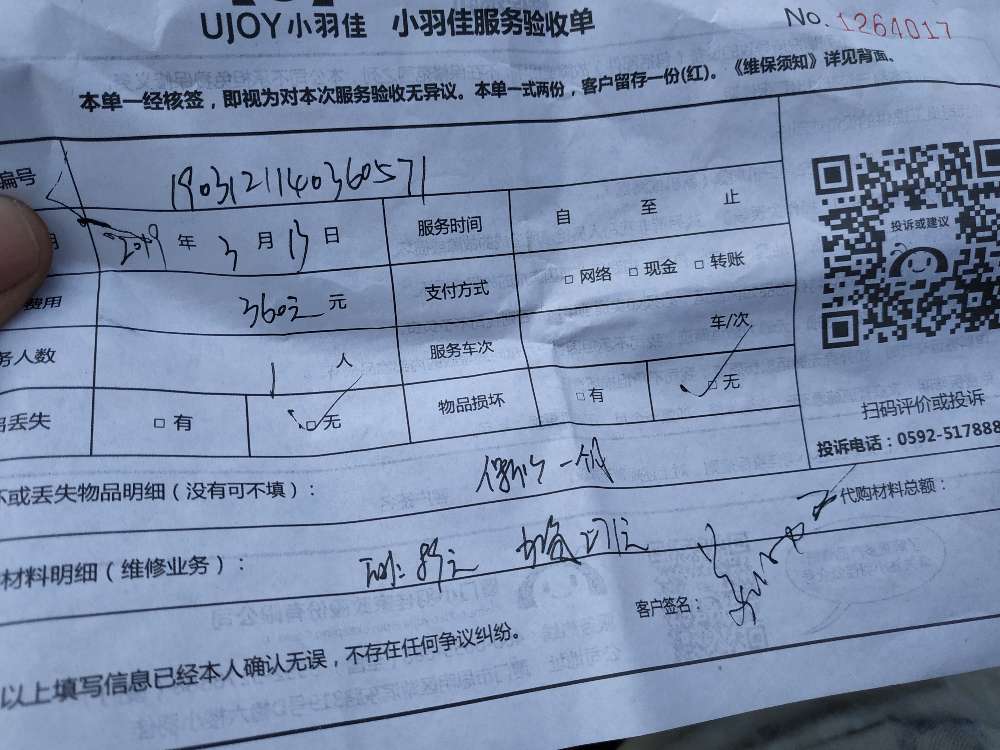 UJOY小羽佳 小羽佳服务验收单 No.1264017
本单一经核签，即视为对本次服务验收无异议。本单一式两份，客户留存一份(红)。《维保须知》详见背面。
编号 190312114036057​1
2019 年 3 月 13 日 服务时间 自 至 止
费用 360元 元 支付方式 □ 网络 □ 现金 □ 转账
务人数 1 人 服务车次 车/次
丢失 □ 有 □ 无 物品损坏 □ 有 □ 无
投诉或建议
扫码评价或投诉
投诉电话：0592-517888
坏或丢失物品明细（没有可不填）：
材料明细（维修业务）：
代购材料总额：
客户签名：
以上填写信息已经本人确认无误，不存在任何争议纠纷。